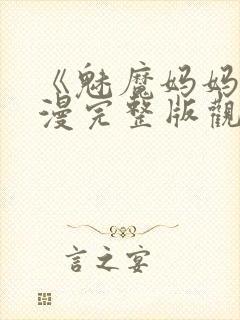 《魅魔妈妈
漫完整版觀
言之宴